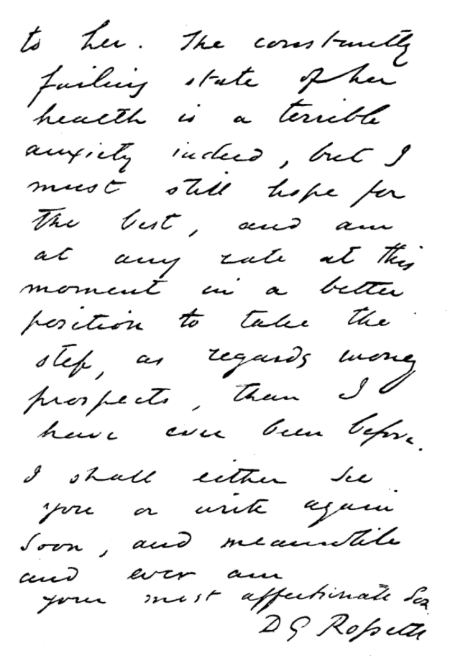 to her. The constantly
failing state of her
health is a terrible
anxiety indeed, but I
must still hope for
the best, and am
at any rate at this
moment in a better
position to take the
step, as regards money
prospects, than I
have ever been before.
I shall either see
you or write again
soon, and meanwhile
and ever am
your most affectionate Son
D G Rossetti